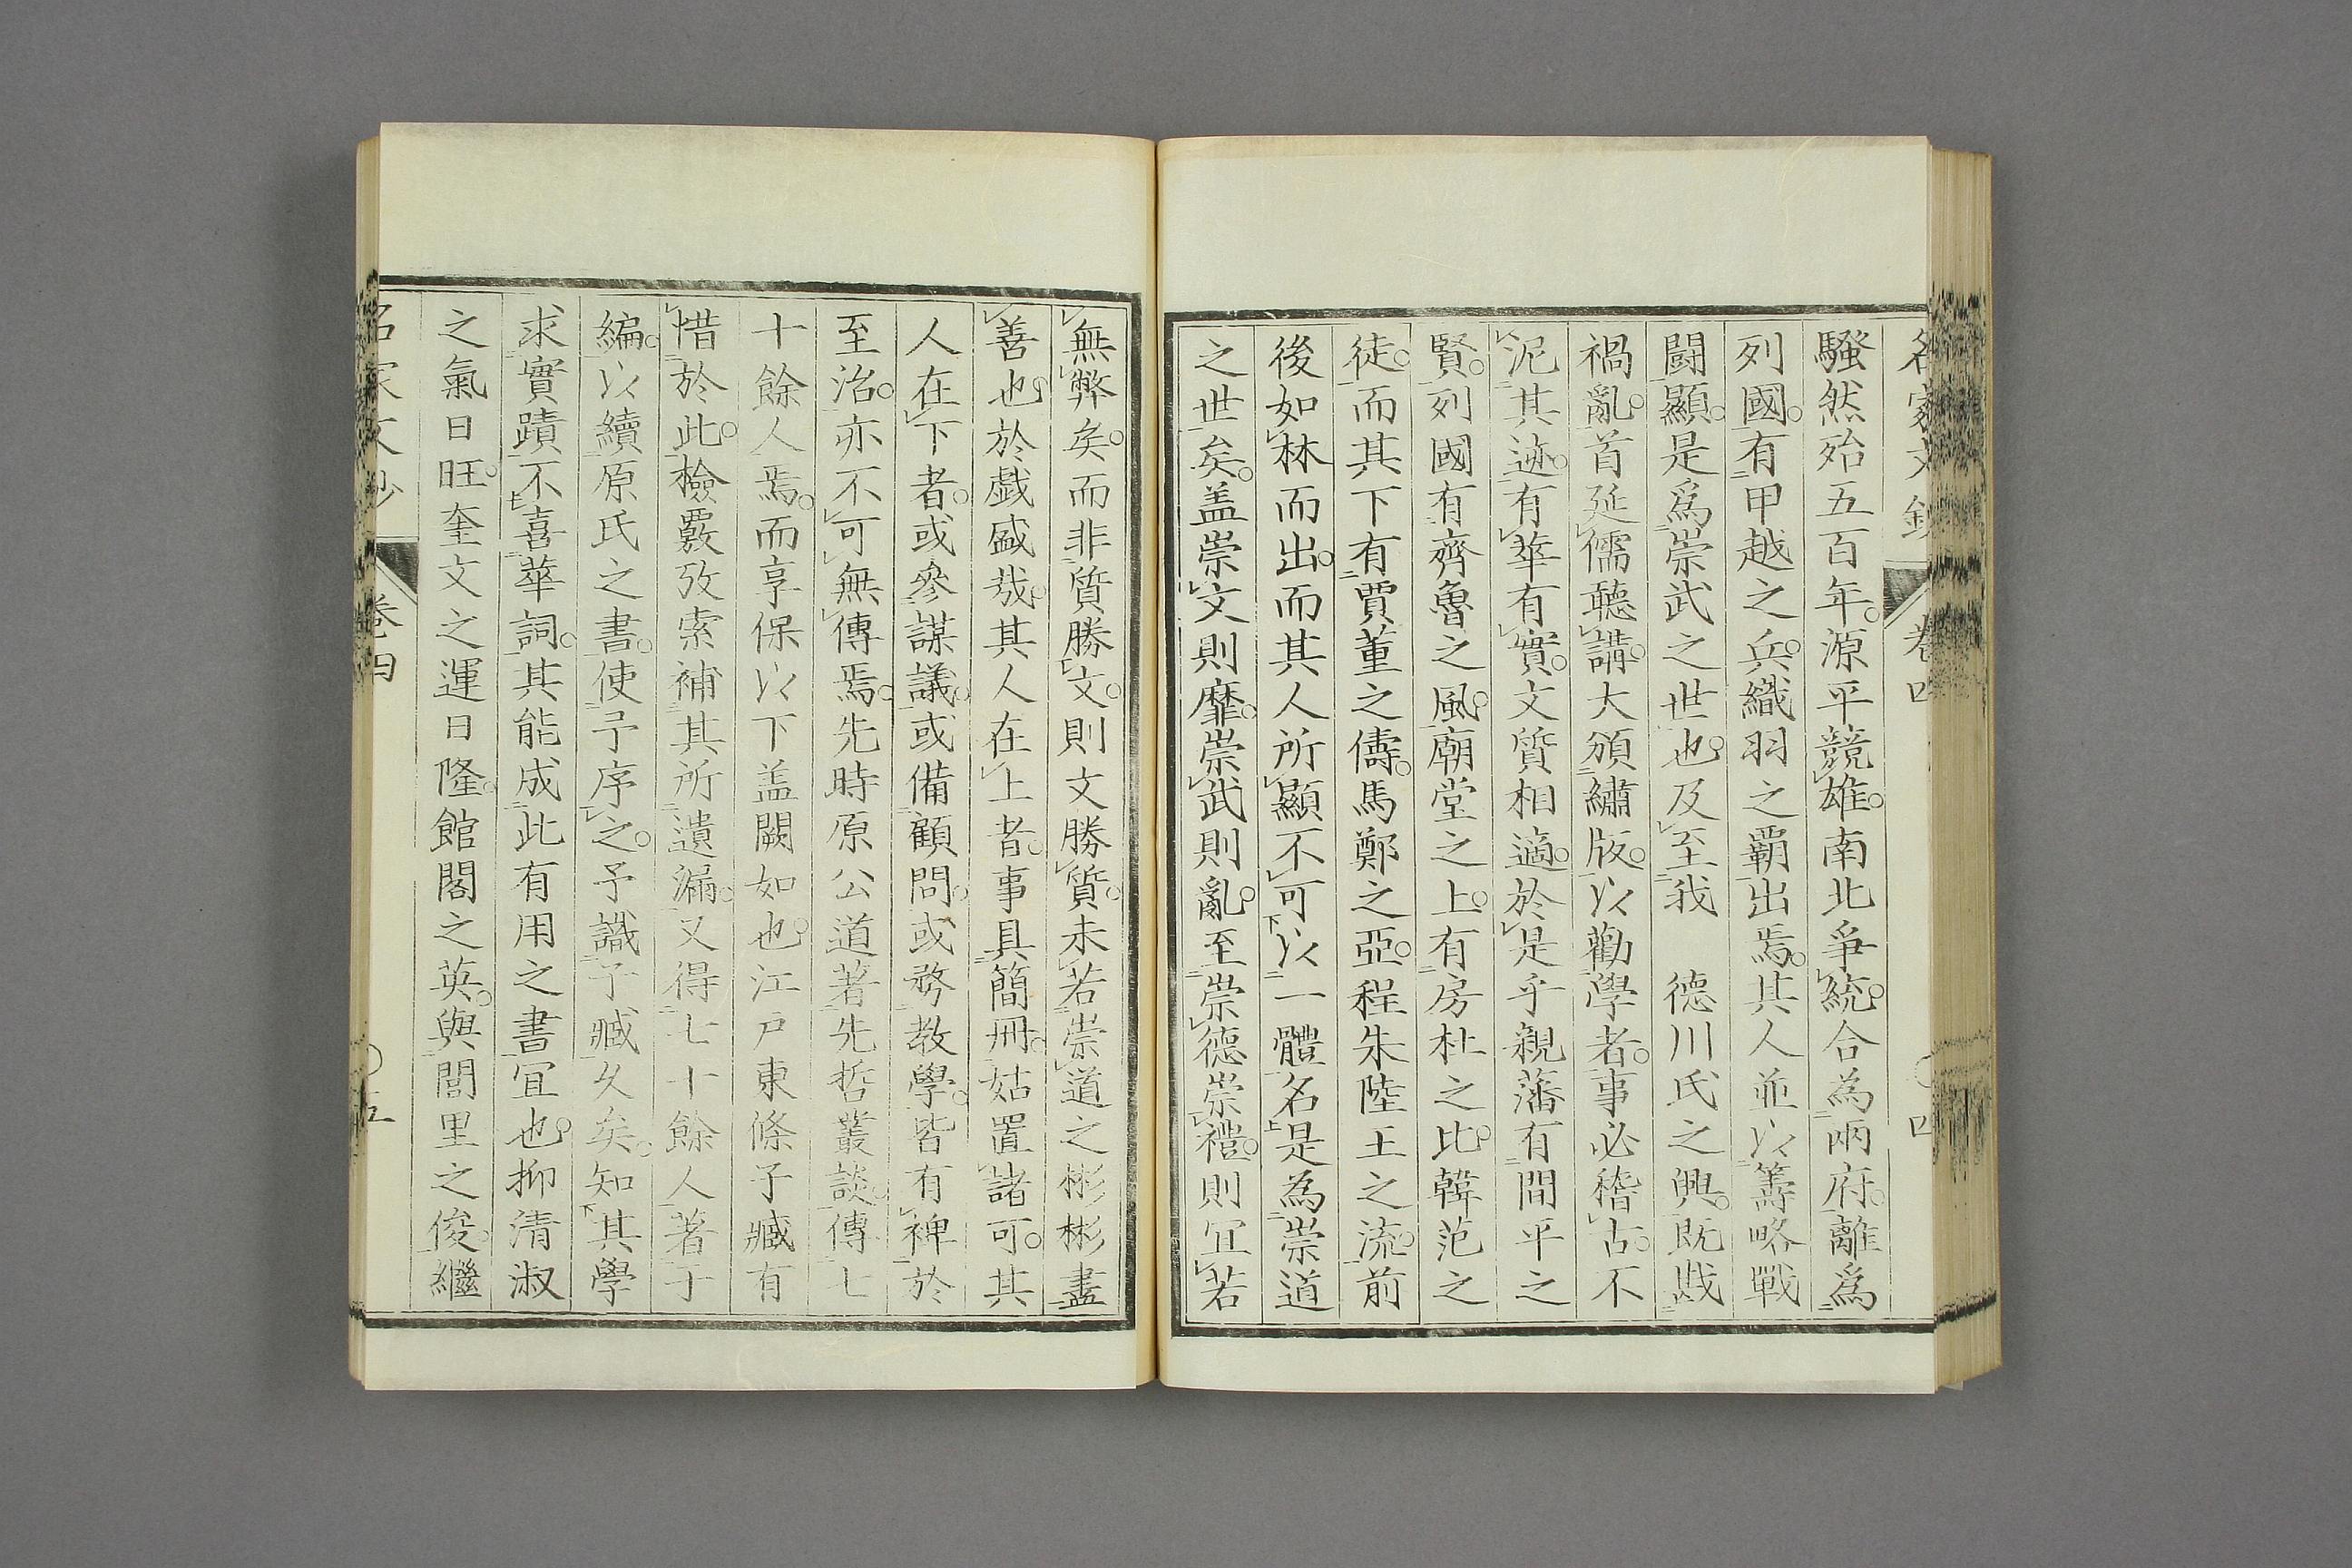 名家文鈔 卷四 〇四
騷然殆五百年。源平競雄。南北爭統。合為兩府。離爲
列國。有甲越之兵。織羽之覇出焉。其人並以籌略戰
鬪顯。是爲崇武之世也。及至我 德川氏之興。既戡
禍亂。首延儒聽講。大頒繡版。以勸學者。事必稽古。不
泥其迹。有華有實。文質相適。於是乎親藩有間平之
賢。列國有齊魯之風。廟堂之上。有房杜之比。韓范之
徒。而其下有賈董之儔。馬鄭之亞。程朱陸王之流。前
後如林而出。而其人所顯不可以一體名。是為崇道
之世矣。盖崇文則靡。崇武則亂。至崇德崇禮。則宜若
無弊矣。而非質勝文。則文勝質。未若崇道之彬彬盡
善也。於戯盛哉。其人在上者。事具簡冊。姑置諸可。其
人在下者。或參謀議。或備顧問。或務教學。皆有裨於
至治。亦不可無傳焉。先時原公道著先哲叢談。傳七
十餘人焉。而享保以下盖闕如也。江戸東條子臧有
惜於此。檢覈攷索補其所遺漏。又得七十餘人。著于
編。以續原氏之書。使予序之。予識子臧久矣。知其學
求實蹟不喜華詞。其能成此有用之書宜也。抑清淑
之氣日旺。奎文之運日隆。館閣之英。與閭里之俊。繼
名家文鈔 卷四 〇五